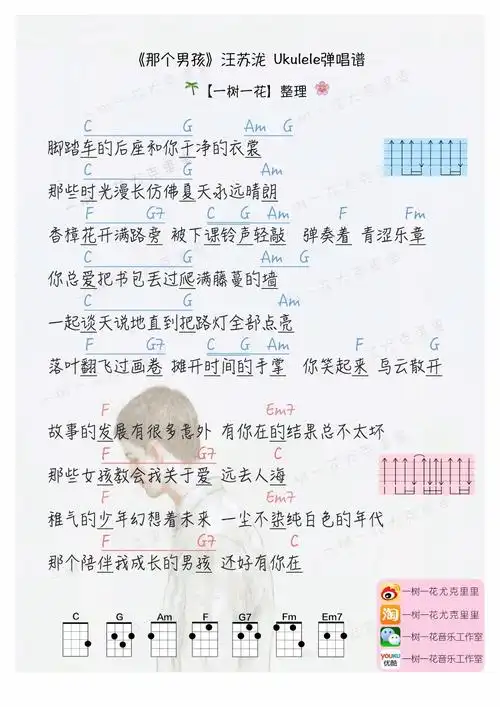 《那个男孩》汪苏泷 Ukulele弹唱谱
【一树一花】整理
C G Am G
脚踏车的后座和你干净的衣裳
C G Am
那些时光漫长仿佛夏天永远晴朗
F G7 C G Am F Fm
香樟花开满路旁 被下课铃声轻敲 弹奏着 青涩乐章
C G Am G
你总爱把书包丢过爬满藤蔓的墙
C G Am
一起谈天说地直到把路灯全部点亮
F G7 C G Am F G
落叶翻飞过画卷 摊开时间的手掌 你笑起来 乌云散开
F Em7
故事的发展有很多意外 有你在的结果总不太坏
F G7 C
那些女孩教会我关于爱 远去人海
F Em7
稚气的少年幻想着未来 一尘不染纯白色的年代
F G7 C
那个陪伴我成长的男孩 还好有你在
C G Am F G7 Fm Em7
一树一花尤克里里
淘 一树一花尤克里里
一树一花音乐工作室
YOUKU 优酷 一树一花音乐工作室